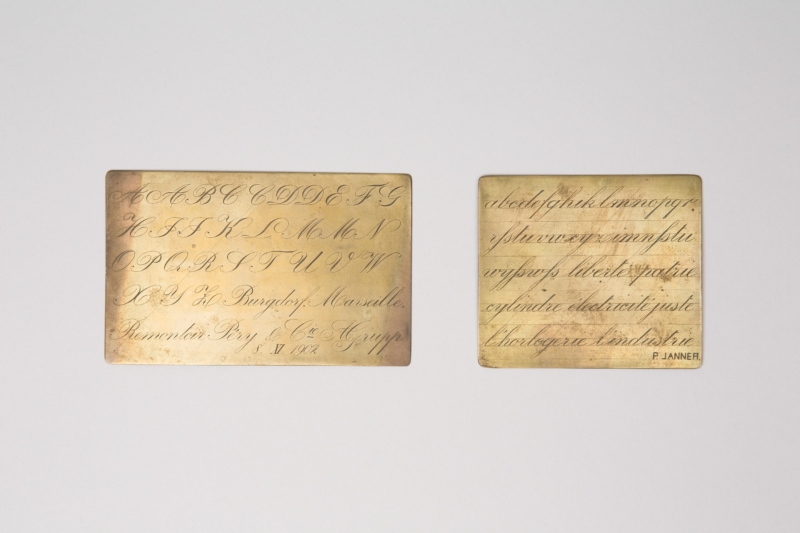 A A B C C D D E F G
H I J K L M M N
O P Q R S T U V W
X Y Z Burgdorf. Marseille.
Remontoir Péry & Cie A Grupp
8. VI 1902
abcdefghiklmnopqr.
rſstuvwxyz imnſstu
wyſswſs liberté patrie
cylindre électricité juste
l'horlogerie l'industrie
P. JANNER.